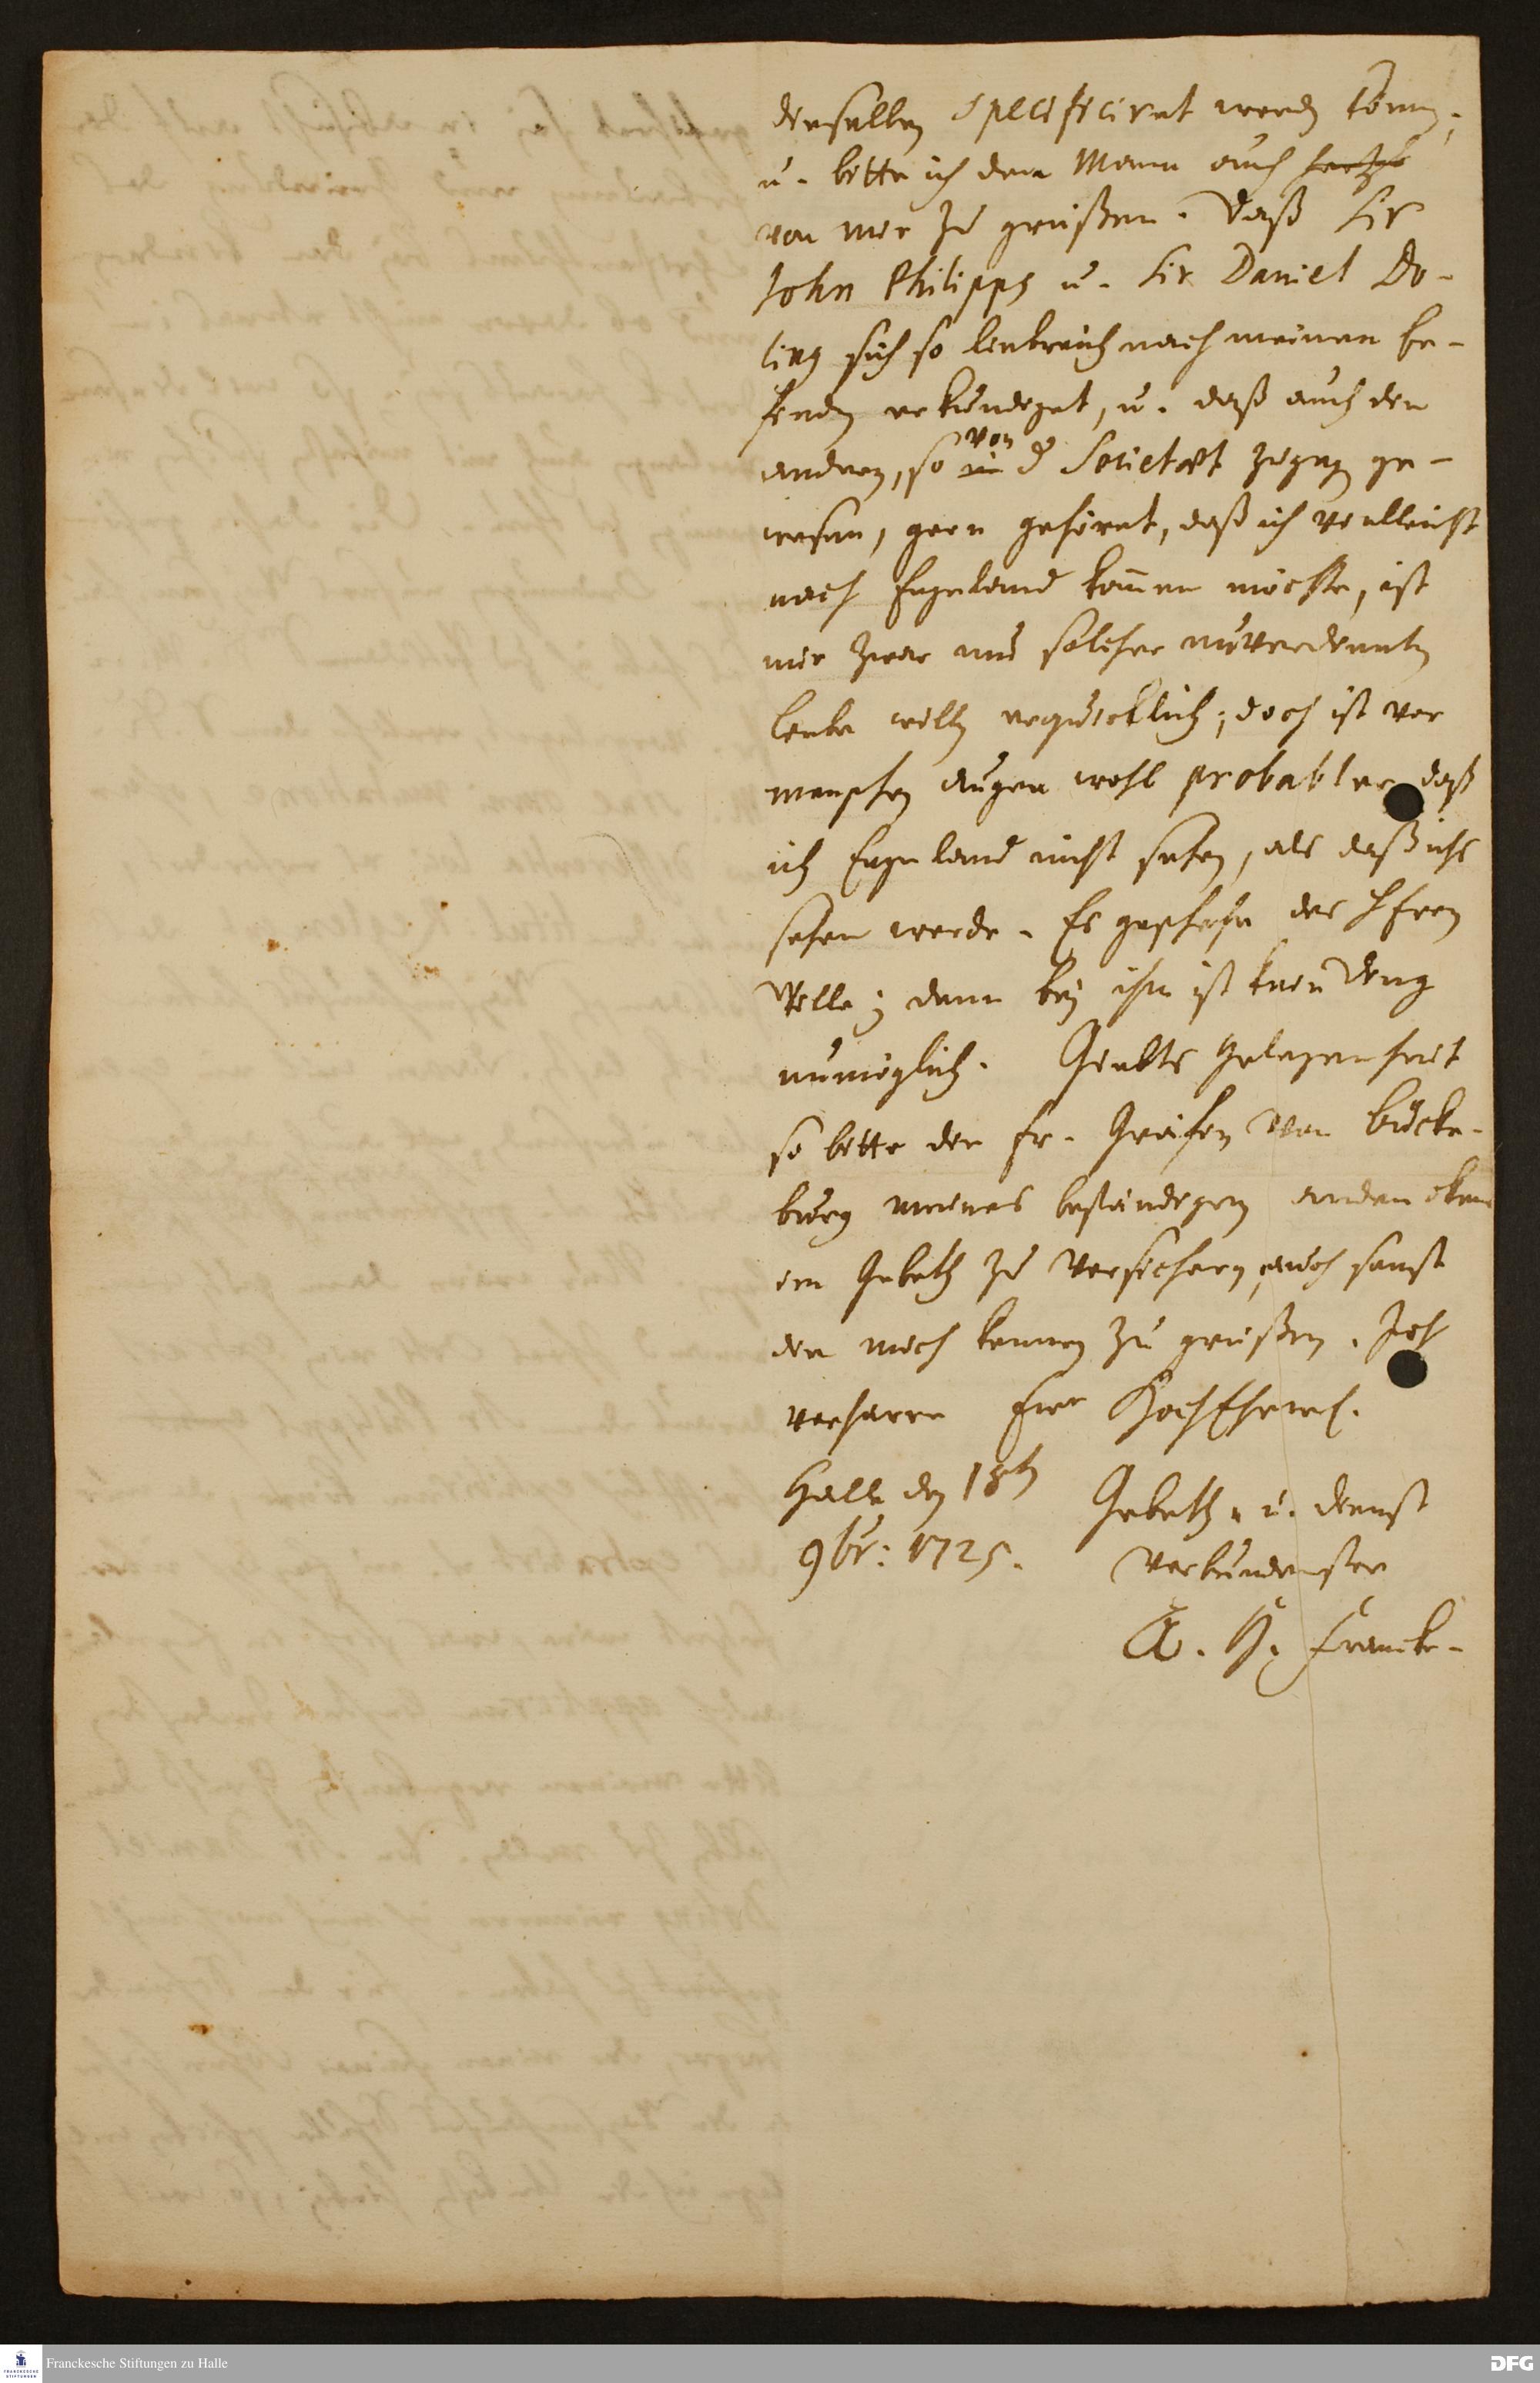 dieselben specificiret werden könen,
u. bitte ich den Mann auch hertzl
von mir zu grüßen. Daß Sir
John Philipps u. Sir Daniel Do-
ling sich so liebreich nach meinen be-
finden erkundiget, u. daß auch den
andren, so in von d Societæt zugegen ge-
wesen, gern gehöret, daß ich vielleicht
nach Engeland kom̄en möchte, ist
mir zwar um solcher unverdienten
liebe willen erquicklich; doch ist vor
menschen augen wohl probabler daß
ich Engeland nicht sehen, als daß ichs
sehen werde. Es geschehe des HErren
Wille; denn bey ihm ist kein Ding
unmöglich. Giebts gelegenheit
so bitte der Fr. Gräfin von Bücke-
burg meines beständigen andencken
im Gebeth zu versichern, auch sonst
die mich kennen zu grüßen. Ich
verharre Eur HochEhrw.
Halle den 18ten
9br: 1725.
Gebeth- u. dienst
verbundenster
A. H. Francke.
Franckesche Stiftungen zu Halle
DFG